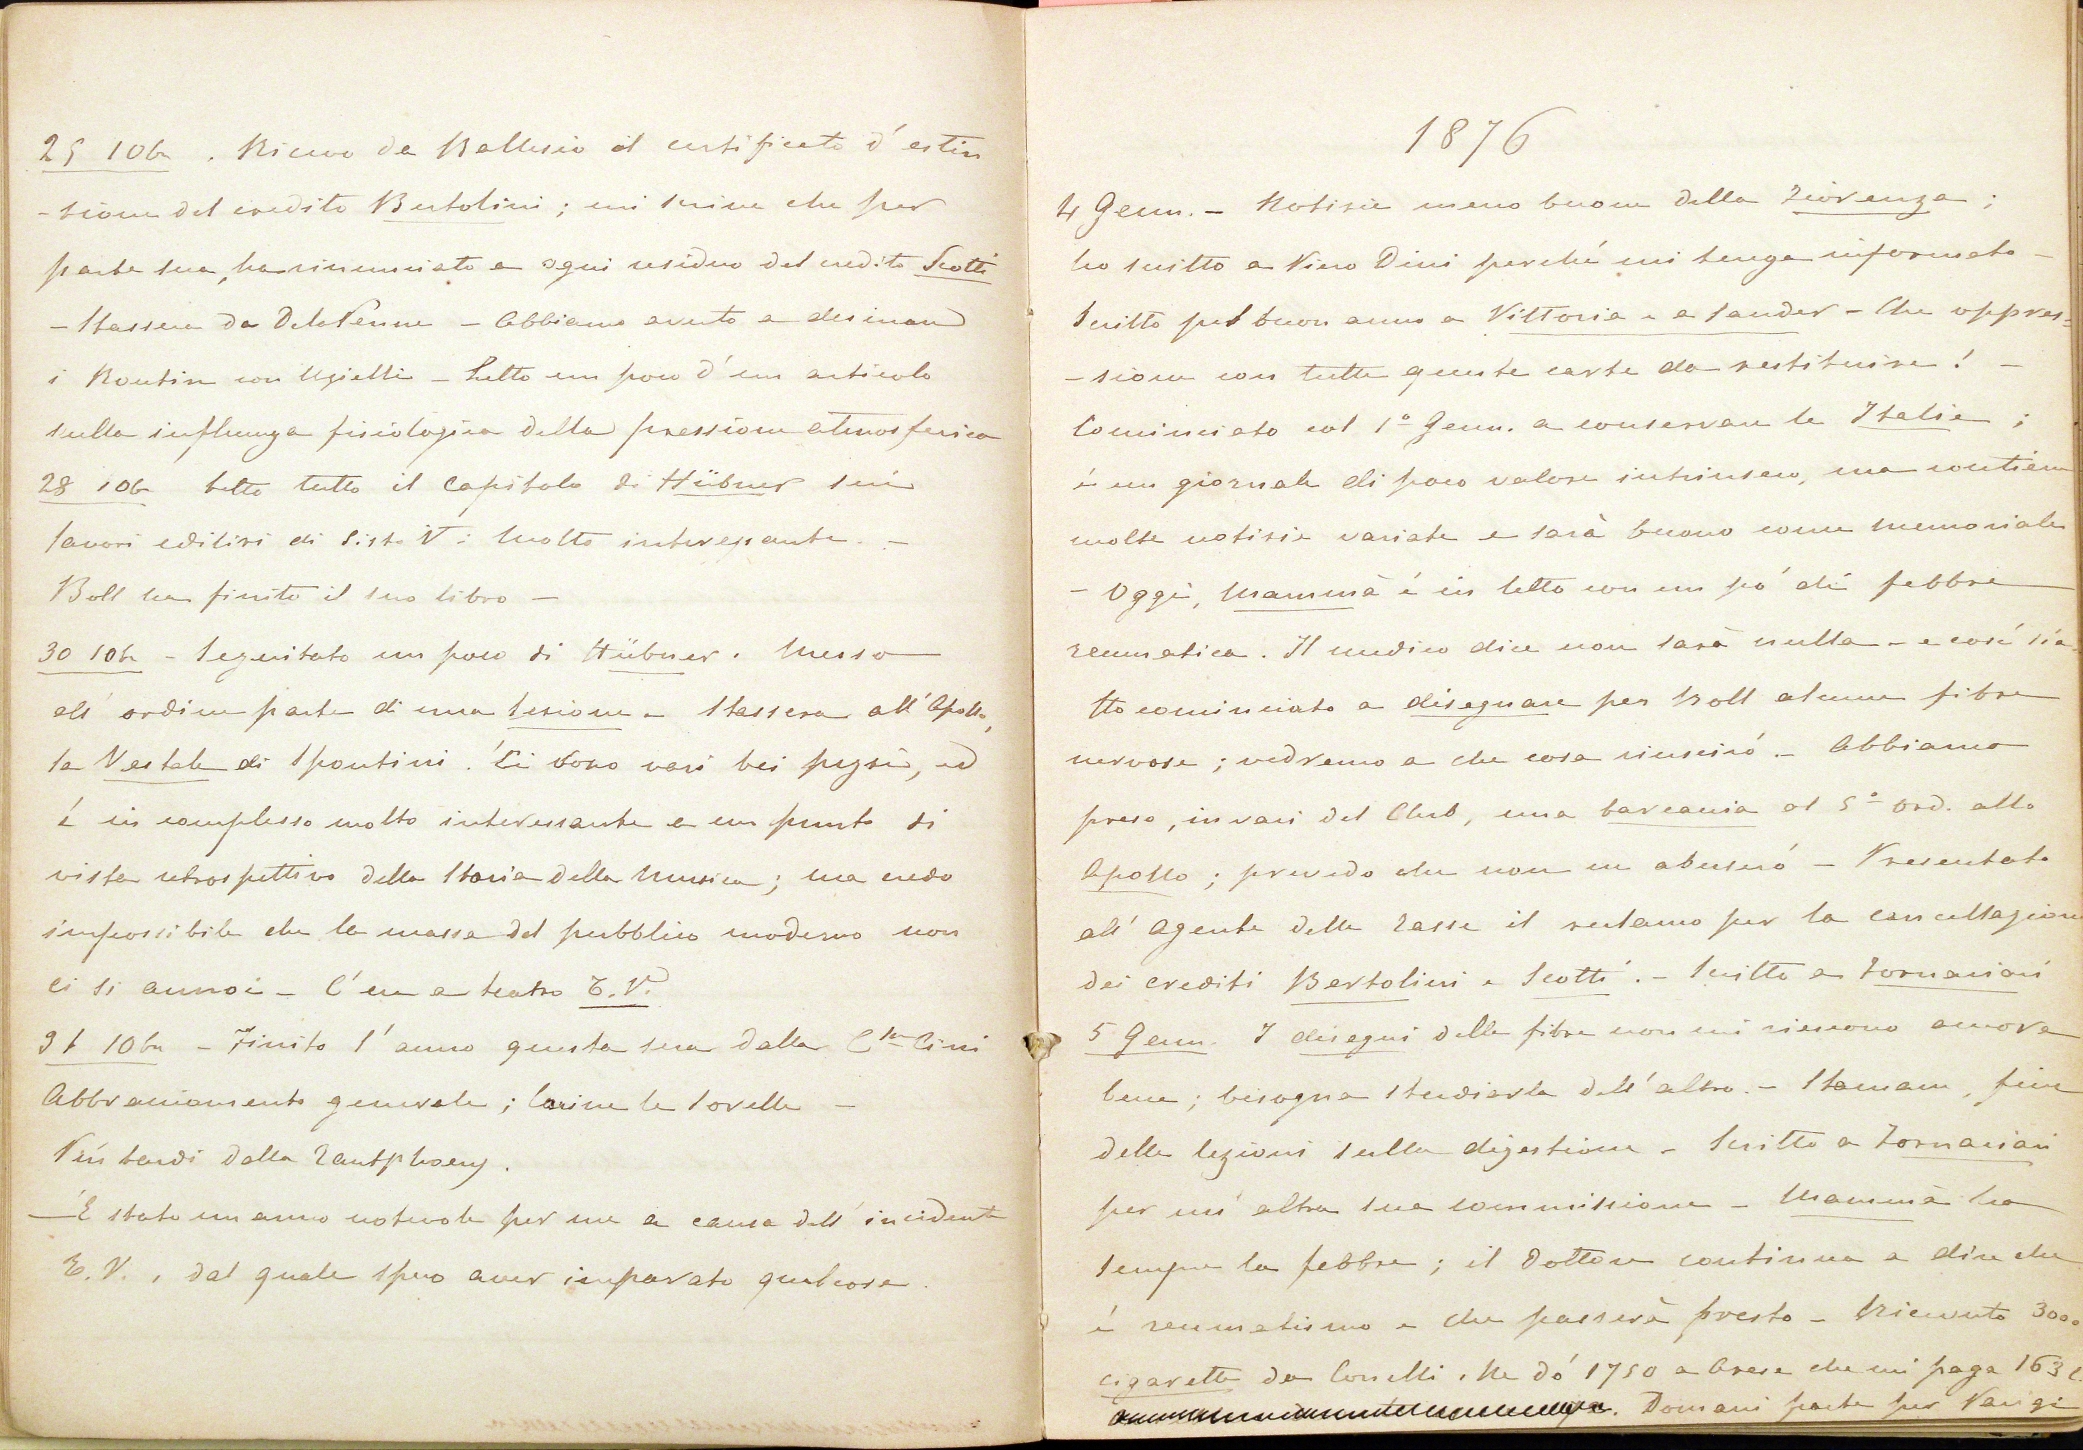 25 10br. Ricevo da Ballesio il certificato d'estin
-zione del credito Bertolini; mi scrive che per
parte sua, ha rinunciato a ogni residuo del credito Scotti
- Stassera da DelaPenne - Abbiamo avuto a desinare
i Routin con Ugielli - Letto un poco d'un articolo
sulla influenza fisiologica della pressione atmosferica
28 10br Letto tutto il capitolo di Hübner sui
lavori edilizi di Sisto V: Molto interessante. -
Boll ha finito il suo libro -
30 10br - Seguitato un poco di Hübner. Messo
all'ordine parte di una lezione - Stassera all'Apollo,
la Vestale di Spontini. Ci sono vari bei pezzi, ed
é in complesso molto interessante a un punto di
vista retrospettivo della Storia della Musica; ma credo
impossibile che la massa del pubblico moderno non
ci si annoi - C'era a teatro E.V.
31 10br - Finito l'anno questa sera dalla Ctssa Cini
Abbracciamento generale; Carine le sorelle -
Più tardi dalla
- É stato un anno notevole per me a causa dell'incidente
E.V., dal quale spero aver imparato qualcosa.
1876
4 Genn. - Notizie meno buone della Fiorenza;
ho scritto a Nino Dini perché mi tenga informato -
Scritto pel buon anno a Vittoria e a Sander - Che oppres=
-sione con tutte queste carte da restituire! -
Cominciato col 1º Genn. a conservare le Italie;
é un giornale di poco valore intrinseco, ma contiene
molte notizie variate e sarà buono come memoriale
- Oggi, Mammà é in letto con un pó di febbre
reumatica. Il medico dice non sarà nulla - e cosí sia.
Ho cominciato a disegnare per Boll alcune fibre
nervose; vedremo a che cosa riusciró. - Abbiamo
preso, in vari del Club, una barcaccia al 5º ord. allo
Apollo; prevedo che non ne abuseró - Presentato
all'Agente delle Tasse il reclamo per la cancellazione
dei crediti Bertolini e Scotti. - Scritto a Fornaciari
5 Genn. I disegni delle fibre non mi riescono ancora
bene; bisogna studiarle dell'altro. - Stamane, fine
delle lezioni sulla digestione - Scritto a Fornaciari
per un'altra sua commissione - Mammà ha
sempre la febbre; il Dottore continua a dire che
é reumatismo e che passerà presto - Ricevuto 3000
cigarette da Corselli. Ne dó 1750 a Brese che mi paga 163 l.
Domani parte per Parigi